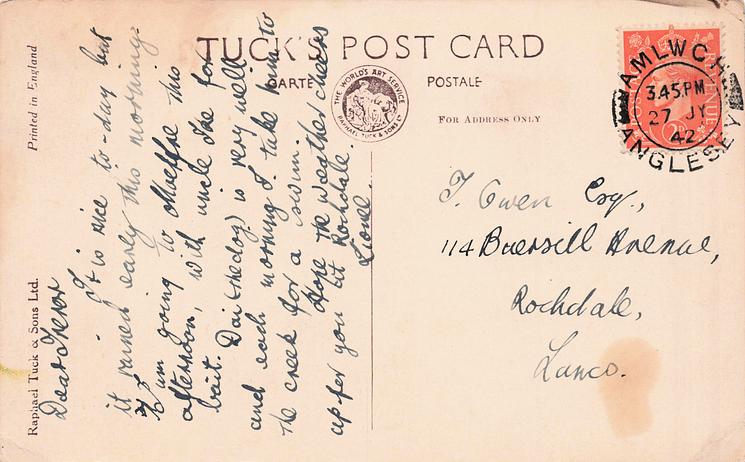 TUCK'S POST CARD
CARTE POSTALE
THE WORLD'S ART SERVICE
RAPHAEL TUCK & SONS LTD
FOR ADDRESS ONLY
Printed in England
Raphael Tuck & Sons Ltd.
AMLWCH
3.45 PM
27 JY
42
ANGLESEY
REVENUE
Dear Trevor
It is nice to-day but
it rained early this morning.
I am going to this
afternoon, with uncle for
bait. Dai (the dog) is very well
and each morning I take him to
the creek for a swim.
Hope the weather cheers
up for you at Rochdale.
Lionel.
T. Owen Esq.,
114 Buersill Avenue,
Rochdale,
Lancs.